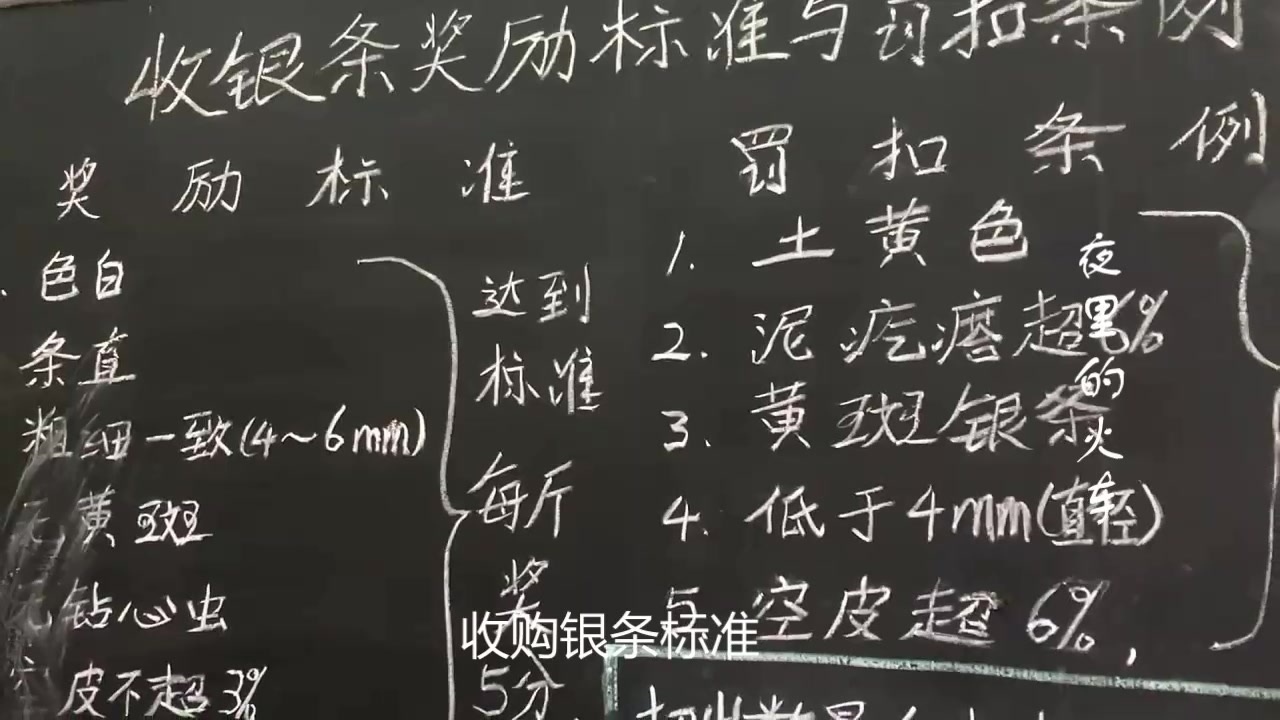 收银条奖励标准与罚扣条例
奖励标准
色白
条直
粗细一致(4～6mm)
无黄斑
钻心虫
皮不超3%
达到
标准
每斤
奖
5分
罚扣条例
1. 土黄色
2. 泥疙瘩超6%
3. 黄斑银条
4. 低于4mm(直径)
5. 空皮超6%,
夜黑的火车
收购银条标准